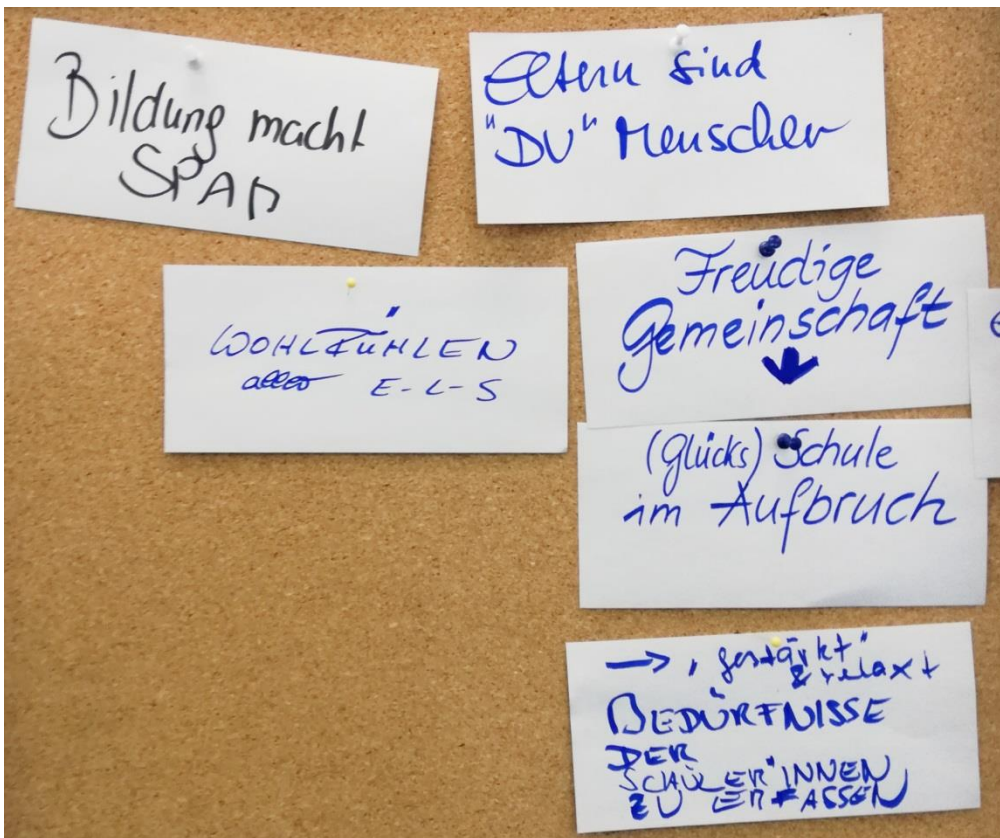 Bildung macht
SPAß
Eltern sind
"DU" Menschen
WOHLFÜHLEN
aller E-L-S
Freudige
Gemeinschaft
(Glücks) Schule
im Aufbruch
→ "gestärkt"
& relaxt
BEDÜRFNISSE
DER
SCHÜLER*INNEN
ZU ERFASSEN